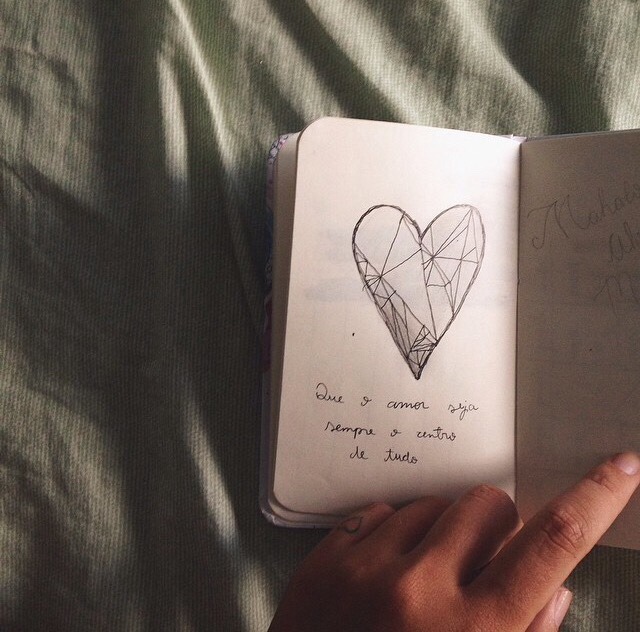 Que o amor seja
sempre o centro
de tudo